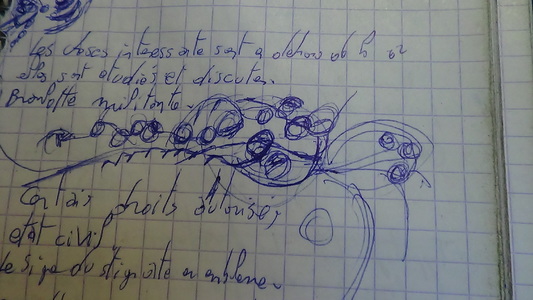 Les choses intéressante sont a dehors de
elles sont étudiés et discutés.
militante.
Certais droits autorisé,
etat civil
le signe du stigmate en emblème.